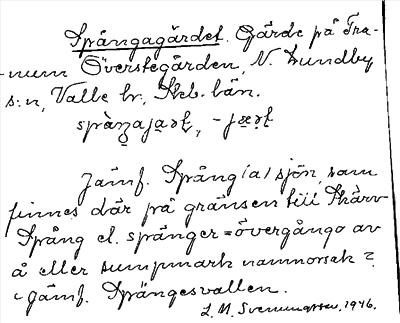 Spångagärdet. Gärde på Tra-
num Överstegården, N. Lundby
s:n, Valle hr, Skb. län.
Jämf. Spång(a)sjön, som
finnes där på gränsen till Skärv
Spång el. spänger = övergångo av
å eller sumpmark namnorsak?
Jämf. Spängesvallen.
L. M. Svenungsson, 1946.